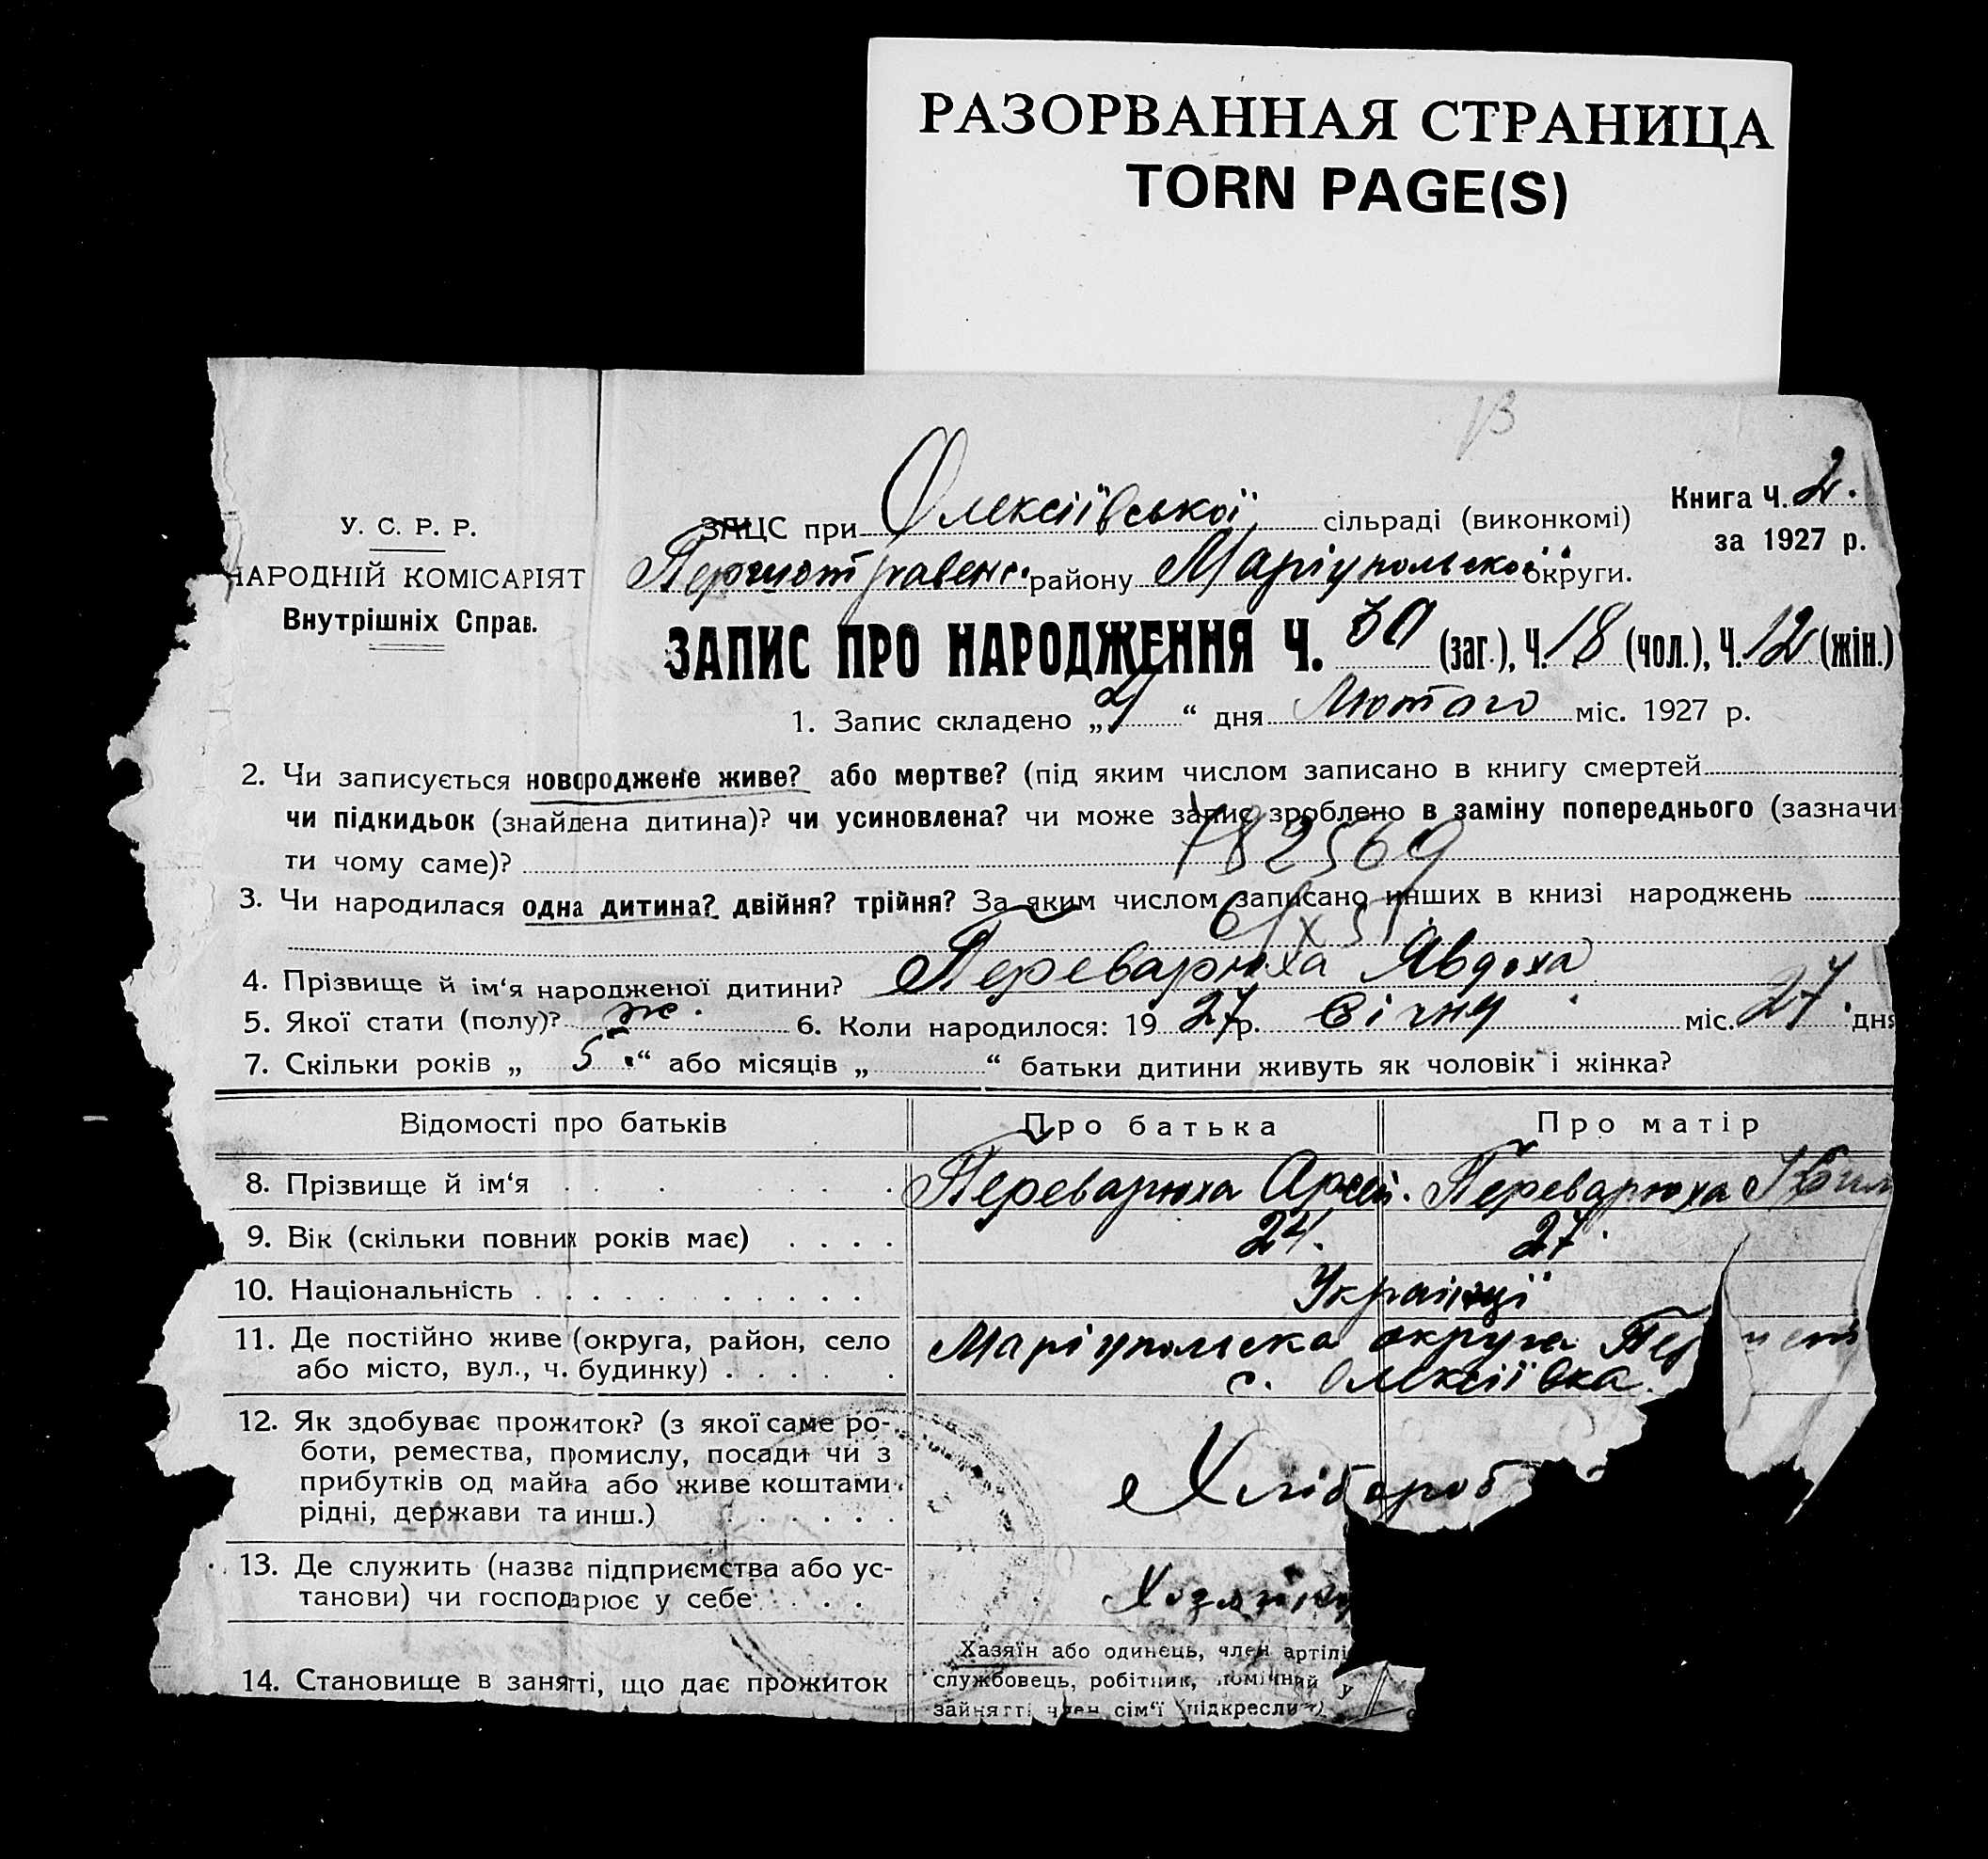 РАЗОРВАННАЯ СТРАНИЦА
TORN PAGE(S)
У. С. Р. Р.
НАРОДНІЙ КОМІСАРІЯТ
Внутрішніх Справ.
Книга Ч. 2.
за 1927 р.
ЗАЦС при Олексіївської сільраді (виконкомі)
Першотравенс. району Маріупольскої округи.
ЗАПИС ПРО НАРОДЖЕННЯ Ч. 30 (заг.), Ч. 18 (чол.), Ч. 12 (жін.)
1. Запис складено „4“ дня Лютого міс. 1927 р.
2. Чи записується новороджене живе? або мертве? (під яким числом записано в книгу смертей
чи підкидьок (знайдена дитина)? чи усиновлена? чи може запис зроблено в заміну попереднього (зазначи
ти чому саме)?
782569
3. Чи народилася одна дитина? двійня? трійня? За яким числом записано инших в книзі народжень
4. Прізвище й ім‘я народженої дитини? Переварюха Явдоха
5. Якої стати (полу)? ж. 6. Коли народилося: 1927 р. січну міс. 27 дня
7. Скільки років „5“ або місяців „ “ батьки дитини живуть як чоловік і жінка?
Відомості про батьків Про батька Про матір
8. Прізвище й ім‘я Переварюха Арсей. Переварюха
9. Вік (скільки повних років має) 24. 27.
10. Національність Українці
11. Де постійно живе (округа, район, село Маріупольска округа Пер
або місто, вул., ч. будинку) с. Олексіївка
12. Як здобуває прожиток? (з якої саме ро-
боти, ремества, промислу, посади чи з
прибутків од майна або живе коштами Хлібороб
рідні, держави та инш.)
13. Де служить (назва підприємства або ус-
танови) чи господарює у себе
Хазяїн або одинець, член артілі
14. Становище в занятті, що дає прожиток службовець, робітник, помічний у
зайнятті член сім‘ї (підкреслити)